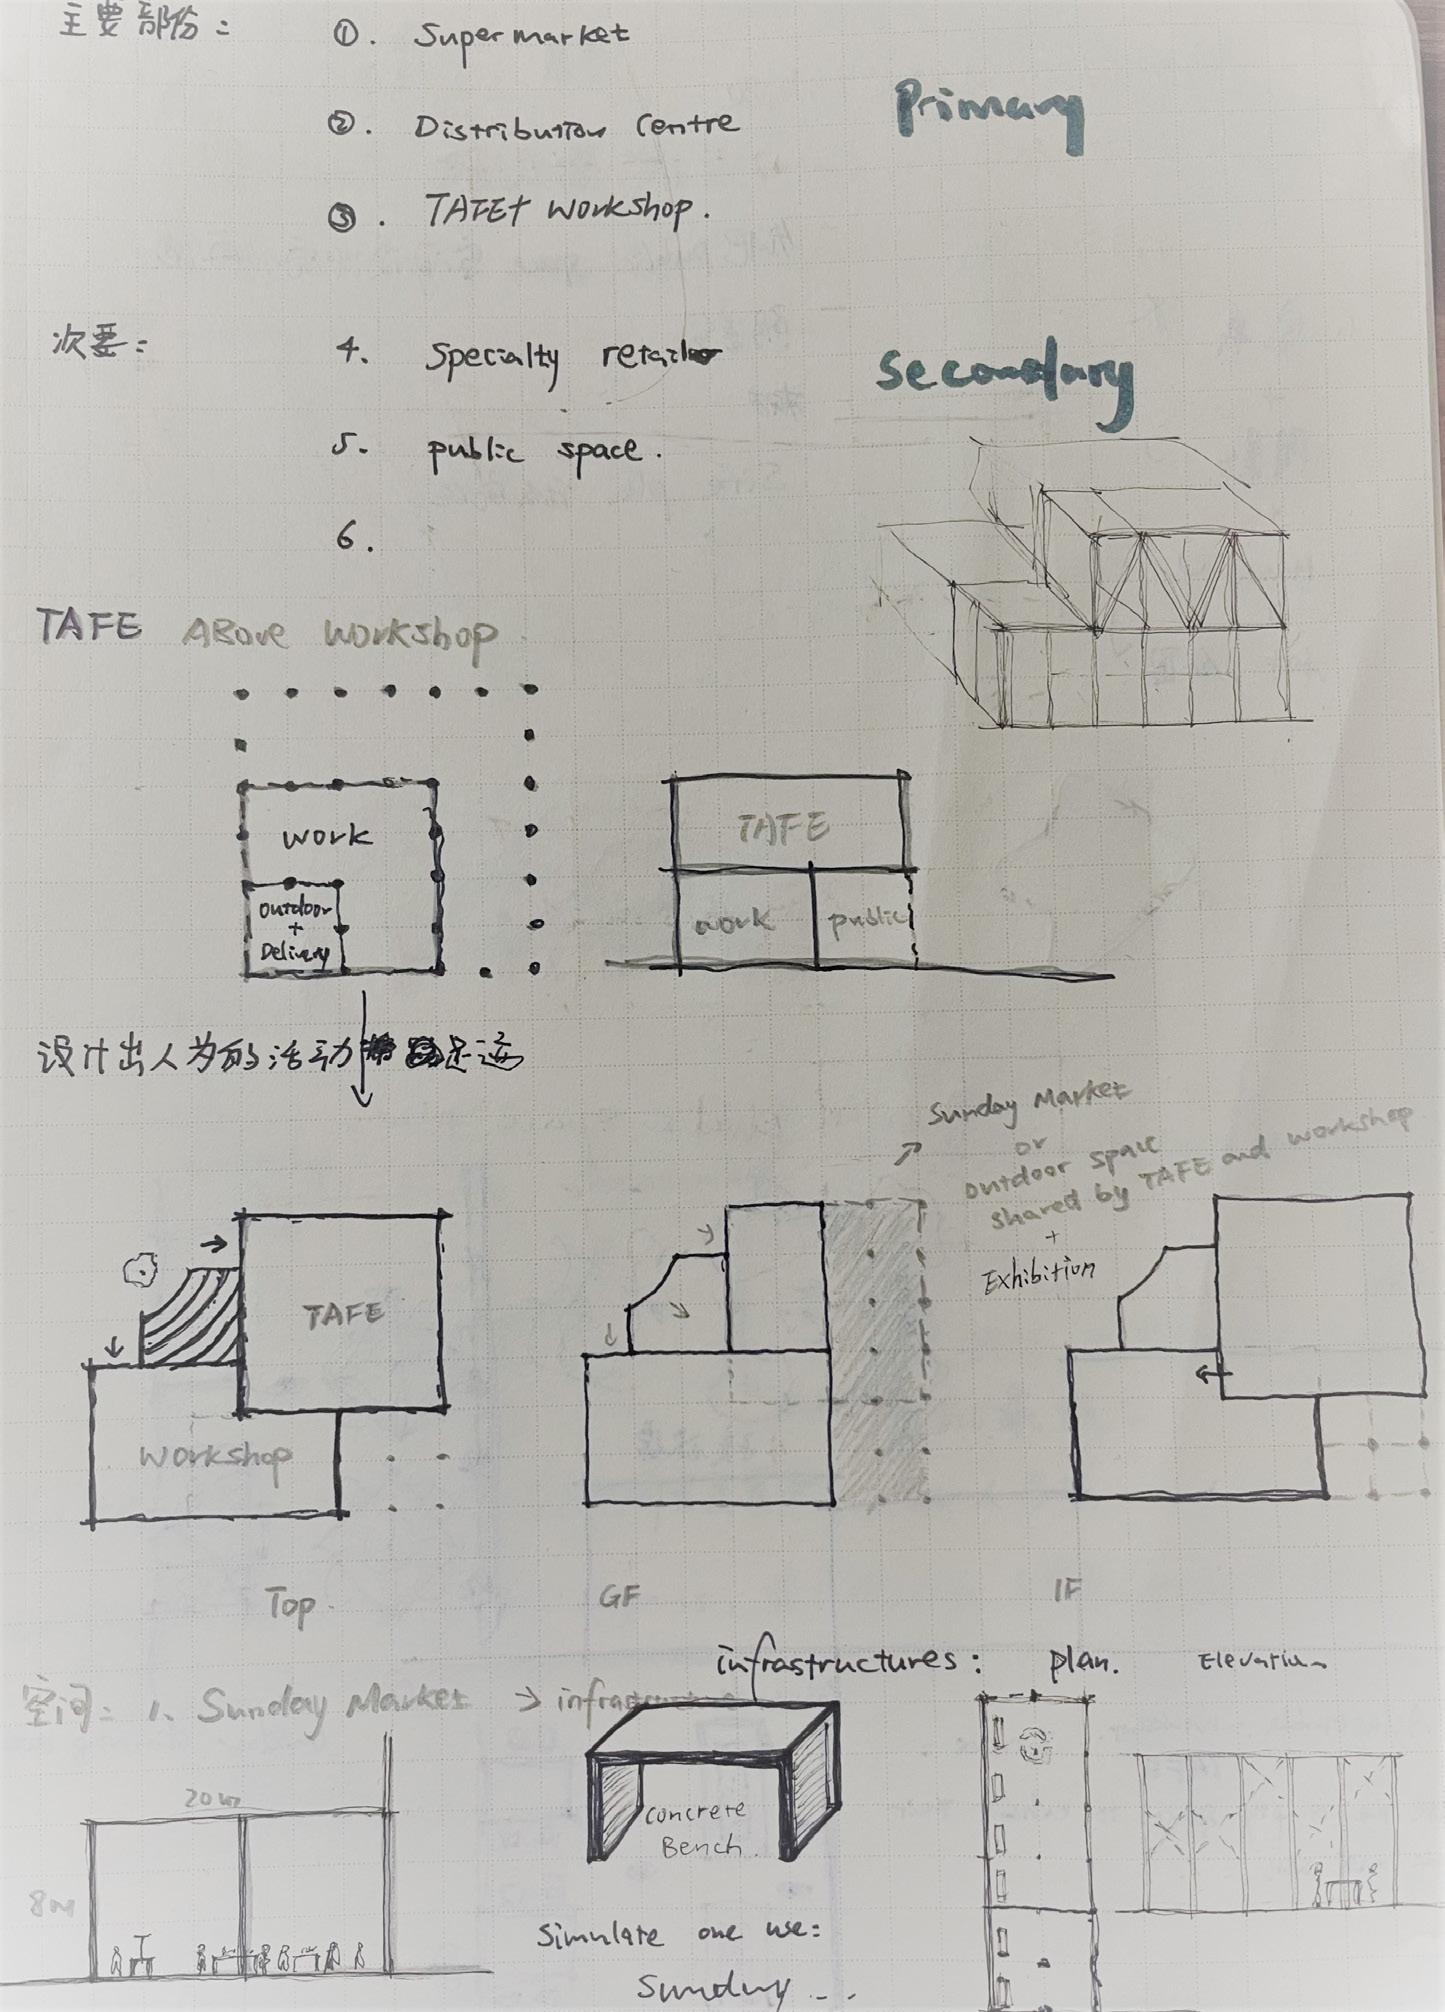 主要部份: ①. Supermarket
②. Distribution Centre
Primary
③. TAFE+ workshop.
次要: 4. Specialty retail
Secondary
5. public space.
6.
TAFE Above workshop
work
outdoor
+
Delivery
TAFE
work
public
设计出人为的活动
Sunday Market
or
outdoor space
shared by TAFE and workshop
+
Exhibition
TAFE
workshop
Top.
GF
1F
infrastructures: plan. Elevation
空间: 1. Sunday Market → infrastructure
20m
8m
Concrete
Bench.
Simulate one use:
Sunday...